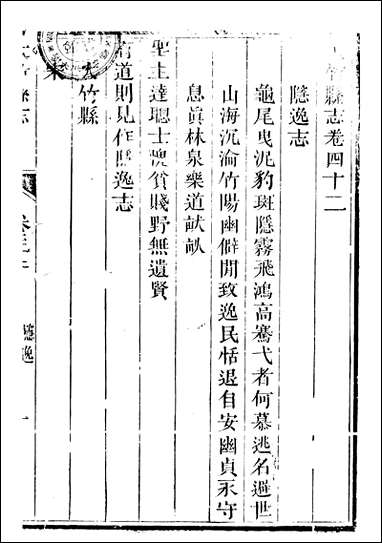 竹縣志卷四十二
隱逸志
龜尾曳泥豹斑隱霧飛鴻高騫弋者何慕逃名避世
山海沉淪竹陽幽僻閒致逸民恬退自安幽貞永守
息真林泉樂道畎畝
聖主達聰士愧貧賤野無遺賢
有道則見作隱逸志
大竹縣
宋
隱逸
一